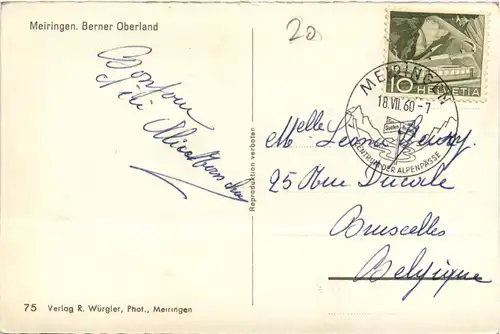 Meiringen. Berner Oberland
20.
10 HELVETIA
MEIRINGEN
18.VII.60-7
Susten
ZENTRUM DER ALPENPÄSSE
Bonjour
Melle
25 Rue Ducale
Bruxelles
Belgique
Reproduktion verboten
75 Verlag R. Würgler, Phot., Meiringen